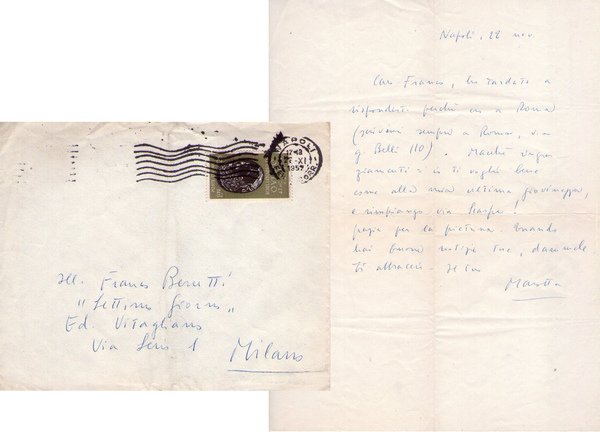 NAPOLI
1957
Ill. Franco Beretti
"Settimo Giorno"
Ed. Vitagliano
Via Senio 1
Milano
Napoli, 22 nov.
Caro Franco, ho tardato a
risponderti perché ero a Roma
(scrivimi sempre a Roma, via
g. Belli 110).
giamenti: io ti voglio bene
come alla mia ultima giovinezza,
e rimpiango via
per la pictura. Quando
hai buone notizie tue, dammele
Ti abbraccio. Il tuo
Marotta